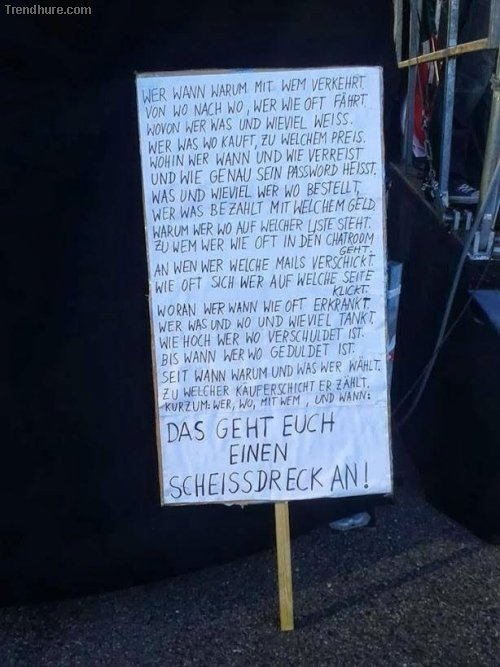 Trendhure.com
WER WANN WARUM MIT WEM VERKEHRT.
VON WO NACH WO, WER WIE OFT FÄHRT.
WOVON WER WAS UND WIEVIEL WEISS.
WER WAS WO KAUFT, ZU WELCHEM PREIS.
WOHIN WER WANN UND WIE VERREIST
UND WIE GENAU SEIN PASSWORD HEISST.
WAS UND WIEVIEL WER WO BESTELLT,
WER WAS BEZAHLT MIT WELCHEM GELD.
WARUM WER WO AUF WELCHER LISTE STEHT.
ZU WEM WER WIE OFT IN DEN CHATROOM
GEHT.
AN WEN WER WELCHE MAILS VERSCHICKT
WIE OFT SICH WER AUF WELCHE SEITE
KLICKT.
WORAN WER WANN WIE OFT ERKRANKT.
WER WAS UND WO UND WIEVIEL TANKT.
WIE HOCH WER WO VERSCHULDET IST.
BIS WANN WER WO GEDULDET IST.
SEIT WANN WARUM UND WAS WER WÄHLT.
ZU WELCHER KÄUFERSCHICHT ER ZÄHLT.
KURZUM: WER, WO, MIT WEM, UND WANN:
DAS GEHT EUCH
EINEN
SCHEISSDRECK AN!